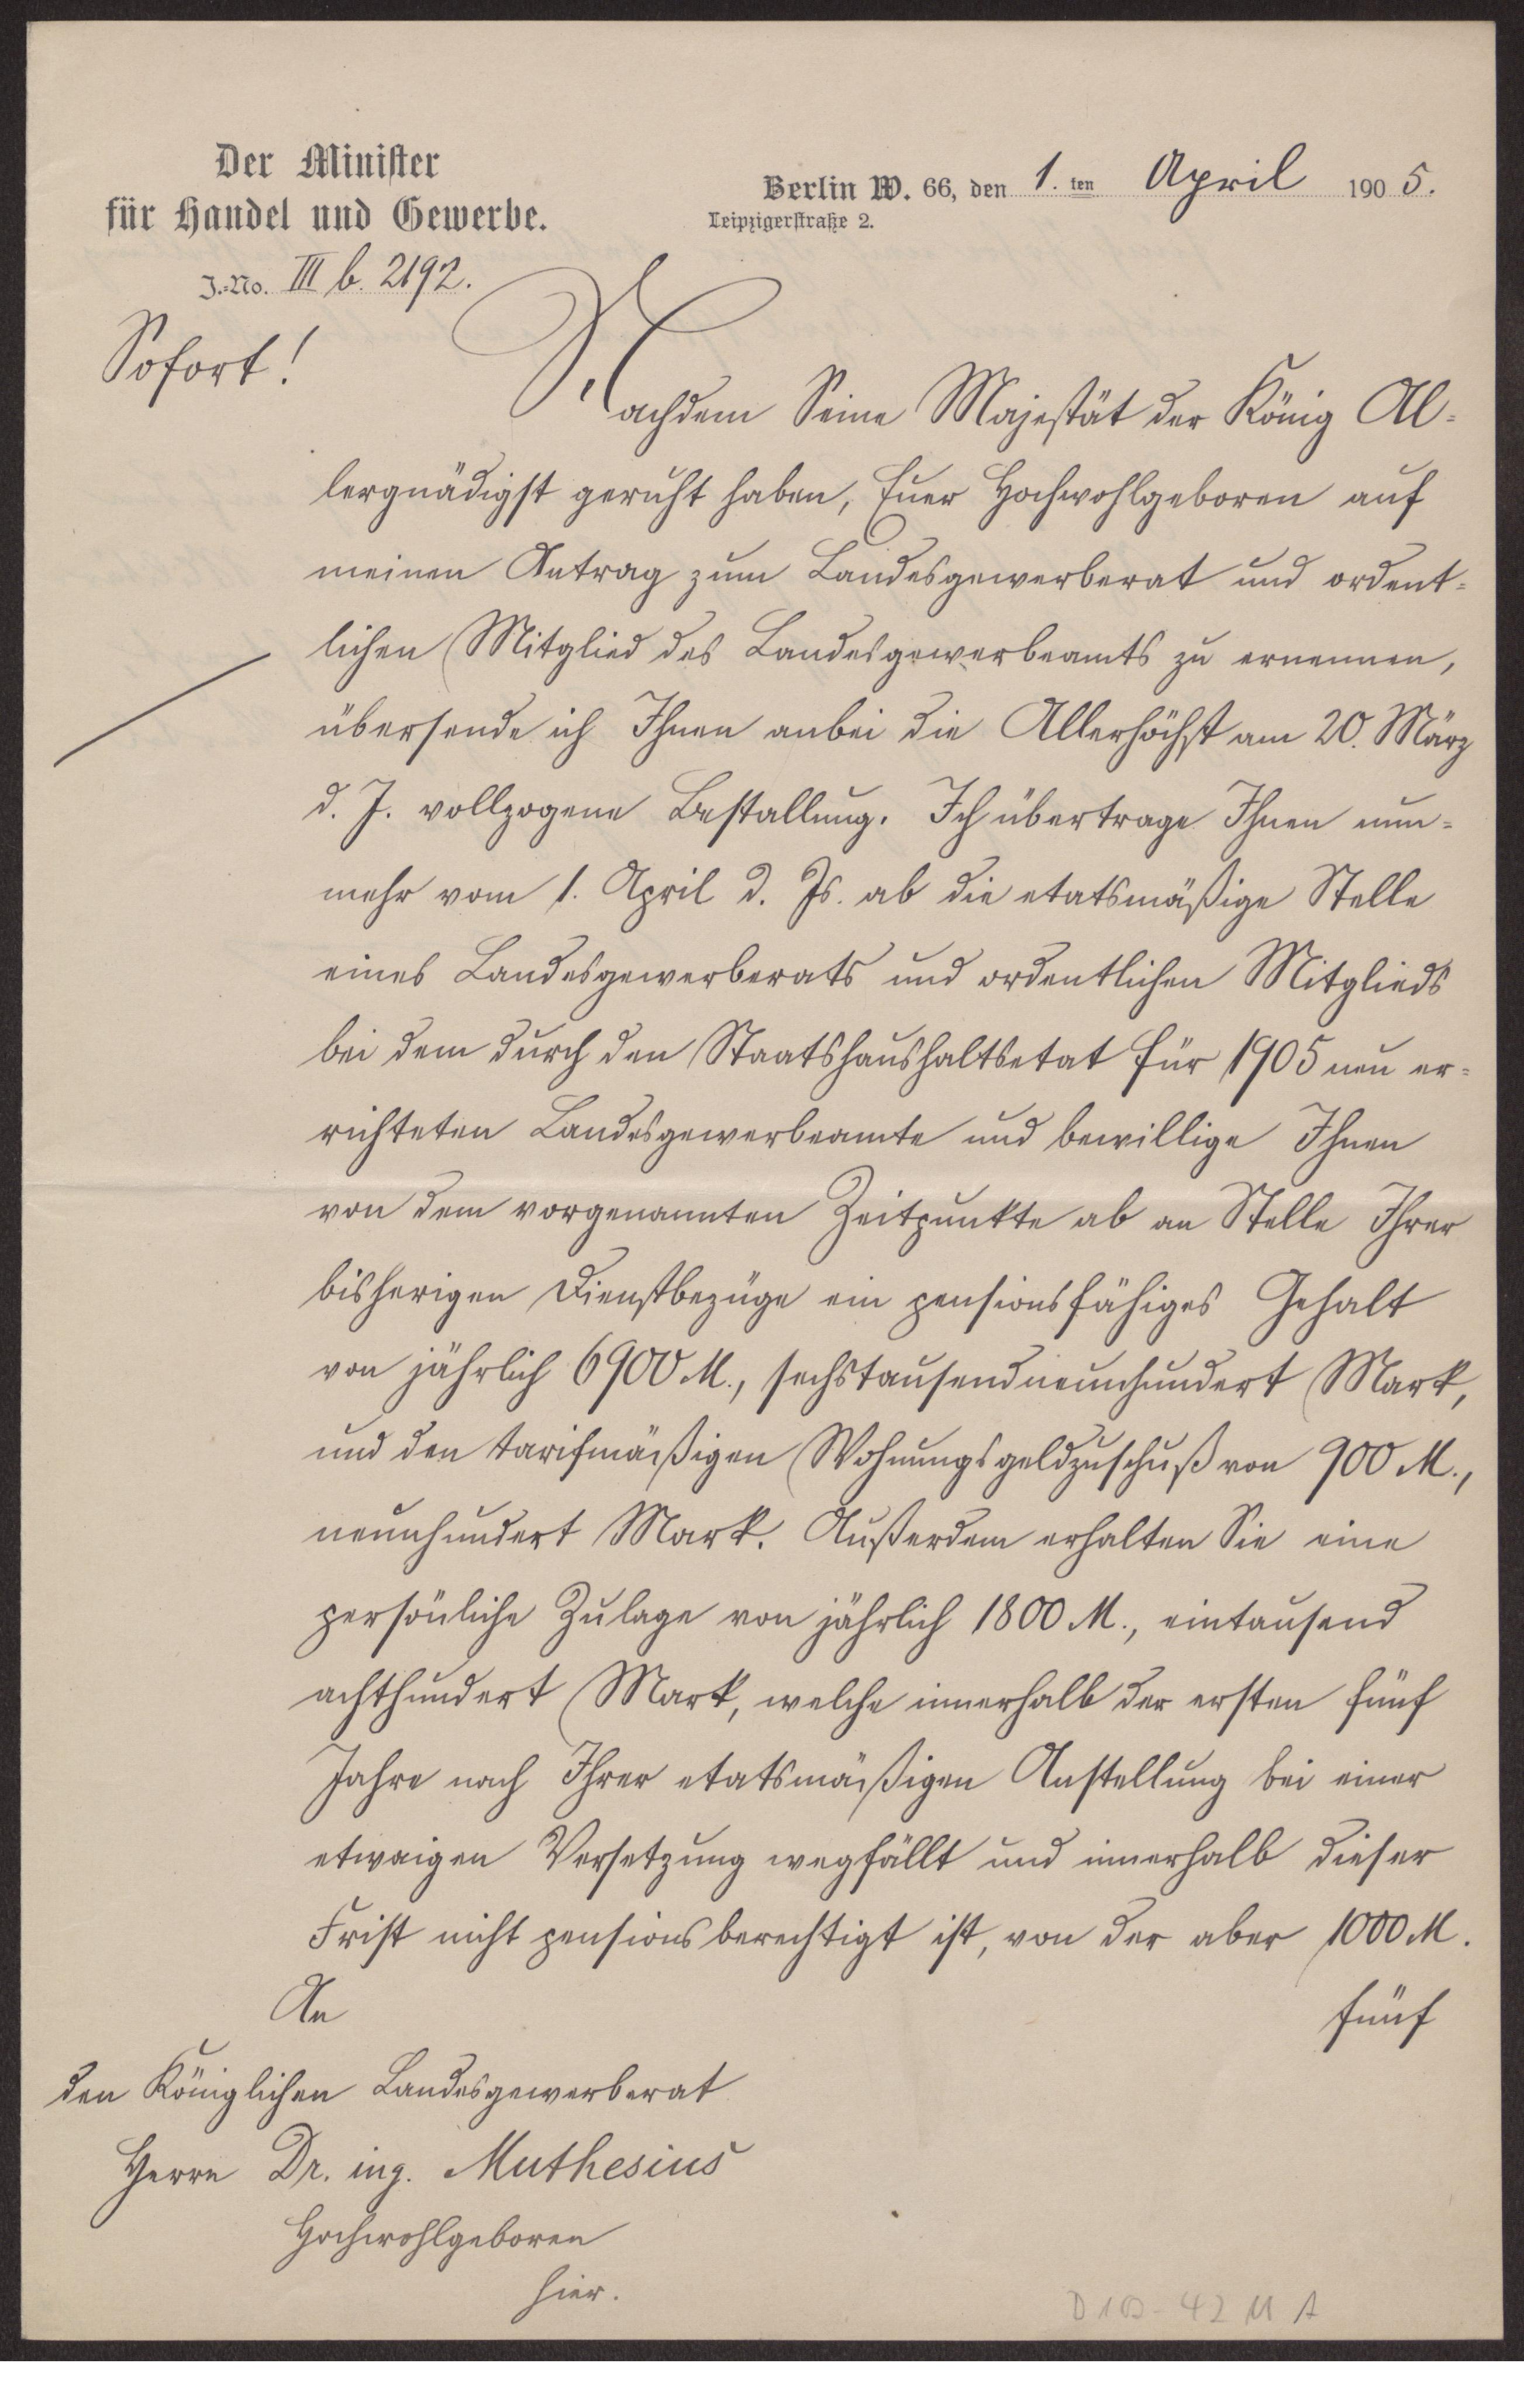 Der Minister
für Handel und Gewerbe.
Berlin W. 66, den 1. ten April 1905.
Leipzigerstraße 2.
J.-No. III b. 2192.
Sofort!
Nachdem Seine Majestät der König Al-
lergnädigst geruht haben, Euer Hochwohlgeboren auf
meinen Antrag zum Landesgewerberat und ordent-
lichen Mitglied des Landesgewerbeamts zu ernennen,
übersende ich Ihnen anbei die Allerhöchst am 20. März
d. J. vollzogene Bestallung. Ich übertrage Ihnen nun-
mehr vom 1. April d. Js. ab die etatsmäßige Stelle
eines Landesgewerberats und ordentlichen Mitglieds
bei dem durch den Staatshaushaltsetat für 1905 neu er-
richteten Landesgewerbeamte und bewillige Ihnen
von dem vorgenannten Zeitpunkte ab an Stelle Ihrer
bisherigen Dienstbezüge ein pensionsfähiges Gehalt
von jährlich 6900 M., sechstausendneunhundert Mark,
und den tarifmäßigen Wohnungsgeldzuschuß von 900 M.,
neunhundert Mark. Außerdem erhalten Sie eine
persönliche Zulage von jährlich 1800 M., eintausend
achthundert Mark, welche innerhalb der ersten fünf
Jahre nach Ihrer etatsmäßigen Anstellung bei einer
etwaigen Versetzung wegfällt und innerhalb dieser
Frist nicht pensionsberechtigt ist, von der aber 1000 M.
fünf
An
den Königlichen Landesgewerberat
Herrn Dr. ing. Muthesius
Hochwohlgeboren
hier.